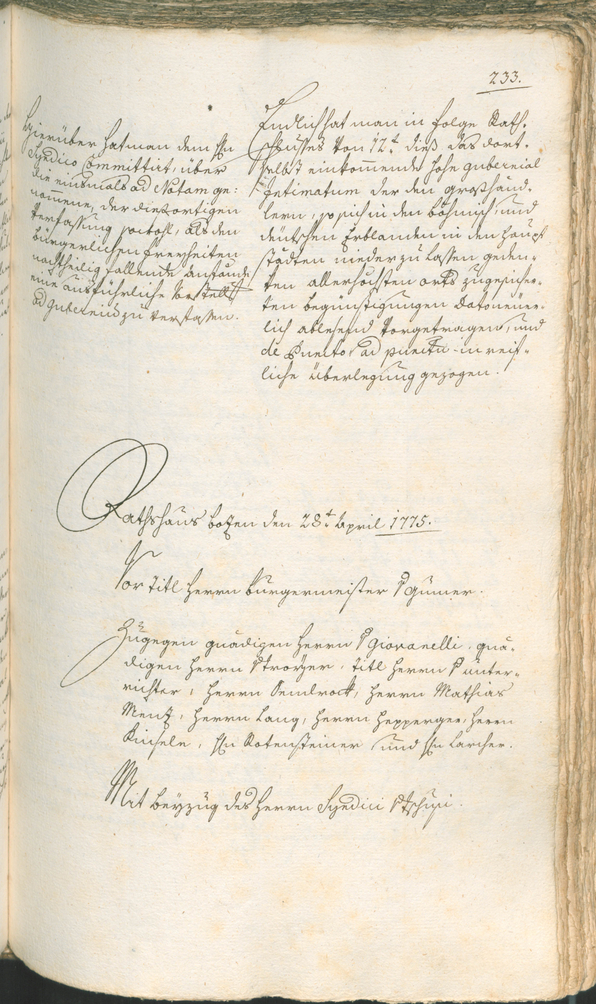 233.
Hierüber hat man dem Hn
Syndico Committirt, über
die einsmals ad Notam ge:
nommene, der diesortigen
Verfassung sowohl, als den
bürgerlichen Freyheiten
nachtheilig fallende anstände
eine ausführliche Vorstellg
ad Gubernium zu verfassen.
Endlich hat man in folge Rath-
schluses von 12t dieß das dort-
selbst einkommende hohe Gubernial
Intimatum der den großhänd-
lern, so sich in den böhmisch- und
deutschen Erblanden in den haupt
städten niederzulassen geden-
ken allerhöchsten orts zugesicher-
ten begünstigungen
lich ablesend Vorgetragen, und
de Puncto ad punctum in reif-
liche Überlegung gezogen.
Rathshaus bozen den 28t April 1775.
Vor titl Herrn burgermeister v Gumer.
Zugegen gnädigen Herrn v Giovanelli, gnä-
digen Herrn v Troyer, titl Herrn v unter-
richter, Herrn Oemlrock, Herrn Mathias
Menz, Herrn Lang, Herrn Hepperger, Herrn
Kinsele, Hn Rotensteiner und Hn Larcher.
Mit beyzug des Herrn Syndici v Tschusi.